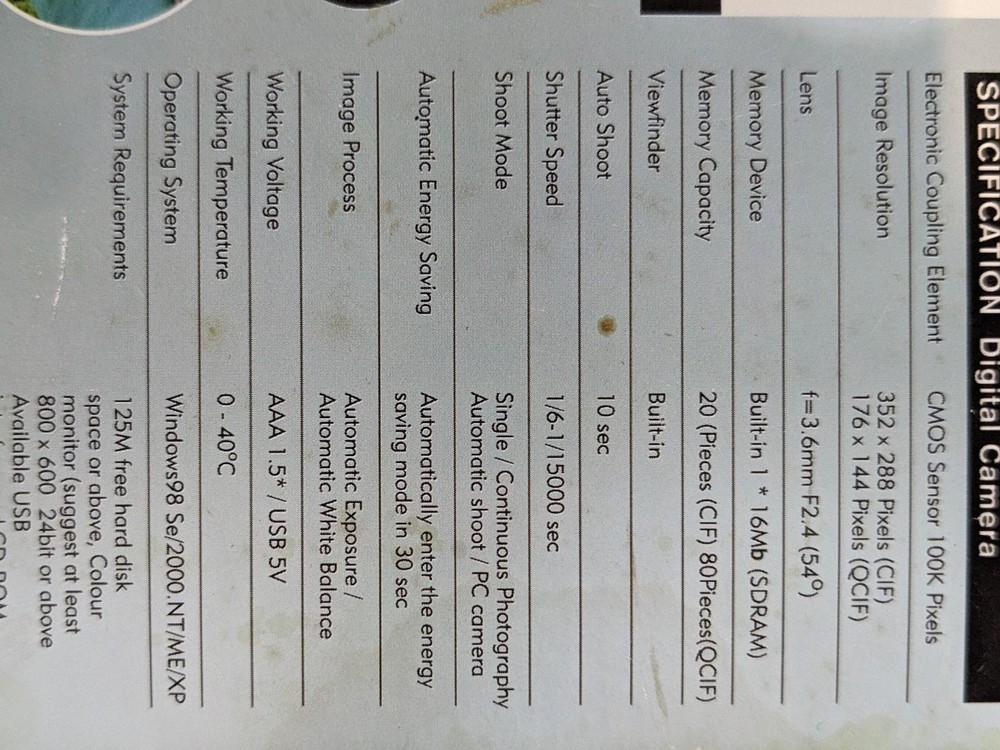 SPECIFICATION Digital Camera
Electronic Coupling Element CMOS Sensor 100K Pixels
Image Resolution 352 x 288 Pixels (CIF)
176 x 144 Pixels (QCIF)
Lens f=3.6mm F2.4 (54°)
Memory Device Built-in 1 * 16Mb (SDRAM)
Memory Capacity 20 (Pieces (CIF) 80Pieces(QCIF)
Viewfinder Built-in
Auto Shoot 10 sec
Shutter Speed 1/6-1/15000 sec
Shoot Mode Single / Continuous Photography
Automatic shoot / PC camera
Automatic Energy Saving Automatically enter the energy
saving mode in 30 sec
Image Process Automatic Exposure /
Automatic White Balance
Working Voltage AAA 1.5* / USB 5V
Working Temperature 0 - 40°C
Operating System Windows98 Se/2000.NT/ME/XP
System Requirements 125M free hard disk
space or above, Colour
monitor (suggest at least
800 x 600 24bit or above
Available USB